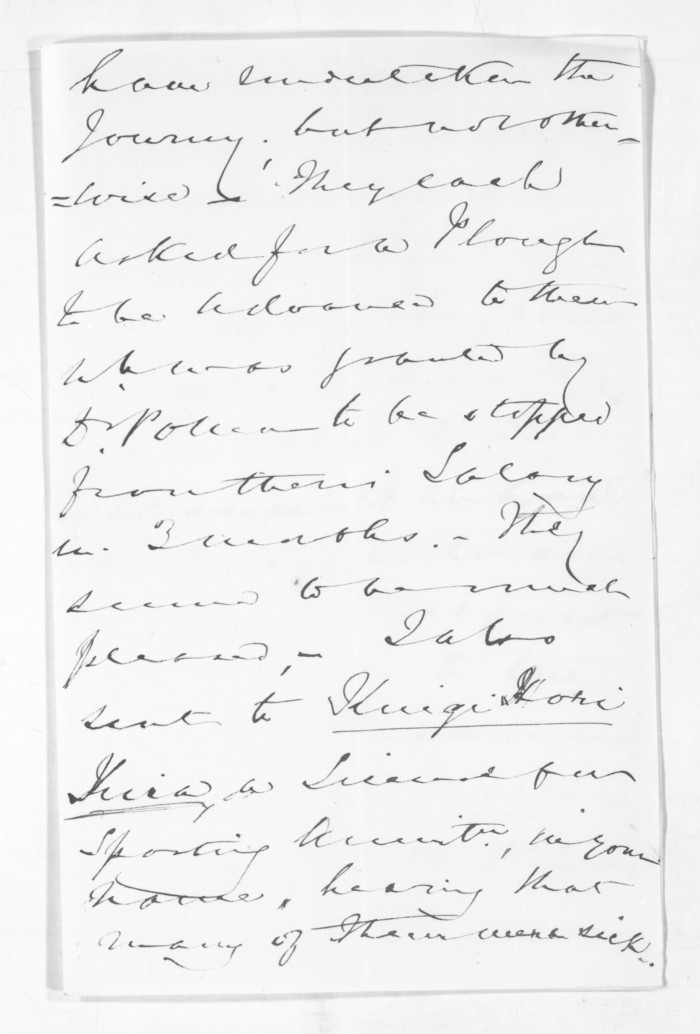 have undertaken the
Journey, but not other=
=wise – They each
asked for a Plough
to be advanced to them
wh. was granted by
Dr. Pollen to be stopped
from their Salary
in 3 months. – They
seemed to be much
pleased, – I also
sent to Kingi Hori
Kira, a License for
Sporting Ammitn., in your
name, hearing that
many of them were sick.